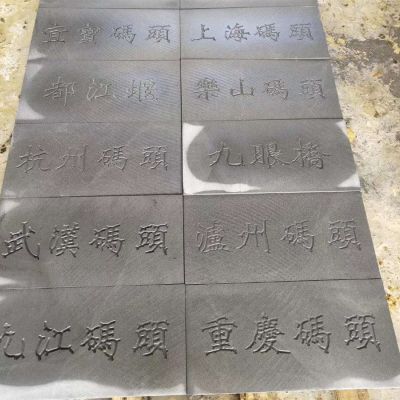 宜賓碼頭
上海碼頭
都江堰
樂山碼頭
杭州碼頭
九眼橋
武漢碼頭
瀘州碼頭
九江碼頭
重慶碼頭